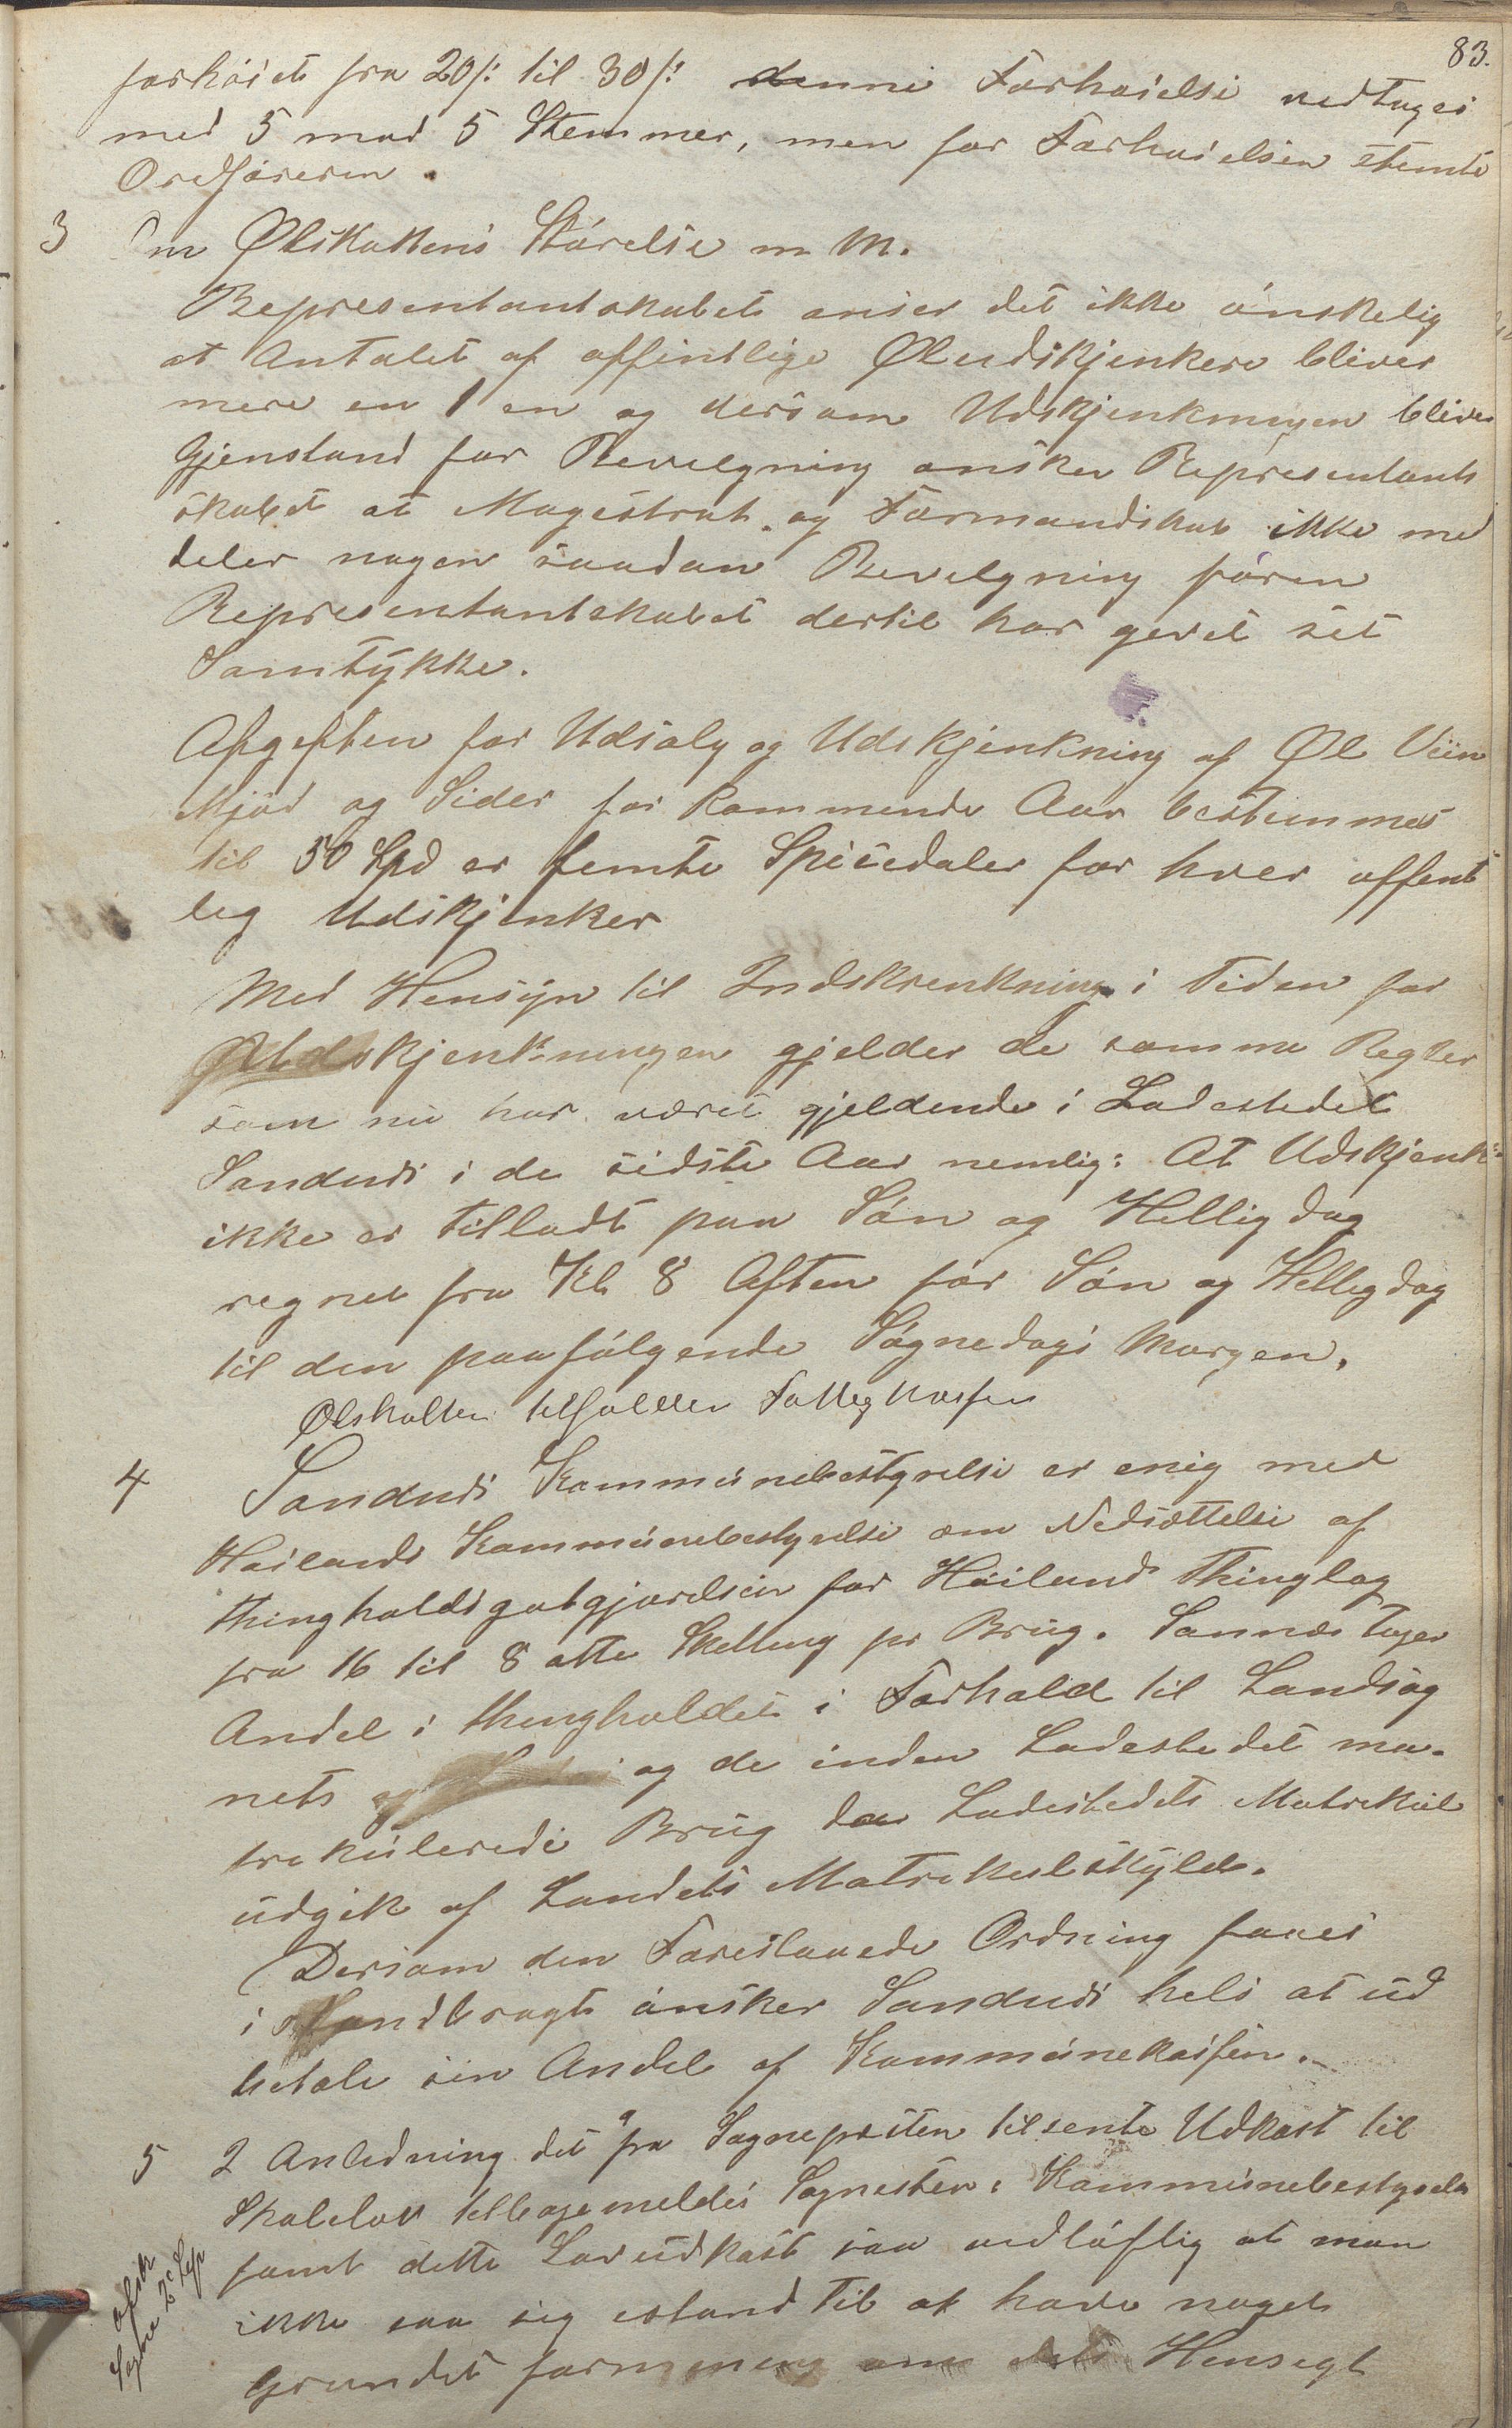 83.
forhöiet fra 20 s: til 30 s: denne Forhöielse vedtoges
med 5 mod 5 Stemmer, men for Forhöielsen stemte
Ordföreren.
3 Om Ølskattens Störelse m M.
Representantskabet anser det ikke önskelig
at Antalet af offintlige Øludskjenkere bliver
mere en 1 en og dersom Udskjenkningen bliver
Gjenstand for Bevelgning önsker Representant
skabet at Magestrat og Formandskab ikke med
deler nogen saadan Bevelgning fören
Representantskabet dertil har gevet sit
Samtykke.
Afgeften for Udsalg og Udskjenkning af Øl Viin
Mjöd og Sider for kommende Aar bestemmes
til 50 Spd er femti Speciedaler for hver offent
leg Udskjenker
Med Hensyn til Indskrenkning i Tiden for
Øludskjenkningen gjelder de samme Regler
som nu har været gjeldende i Ladestedet
Sandnds i de sidste Aar nemlig: At Udskjenk:
ikke er tilladt paa Sön og Hellig dag
regnet fra Kl 8 Aften för Sön og Helligdag
til den paafölgende Sögnedags Morgen,
Ølskatten tilfalder Fattigkassen
4 Sandnds Kommunebestyrelse er enig med
Höilands Kommunebestyrelse om Nedsættelse af
thingholdsgotgjordelsen for Höilands Thinglag
fra 16 til 8 otte Skelling pr Brug. Sannæs tager
Andel i thingholdet i Forhold til Landsog
nets og de inden Ladestedet ma-
trekulerede Brug da Ladestedets Matrekul
udgik af Landets Matrekulskyld.
Dersom den Foreslaaede Ordning faaes
i Standbragt önsker Sandnds hels at ud
betale sin Andel af Kommunekassen.
5 I Anledning det fra Sognepresten tilsente Udkast til
Skolelov tilbagemeldes Sognesten: Kommunebestyrels
fant dette Lovudkast saa vedlöftig at man
ikke saa sig istand til at have noget
Grundet formening om dets Hensegt
Afsk
Sogne 2c Sep